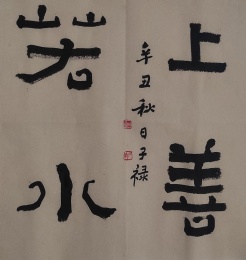 上善
若水
辛丑秋日子禄